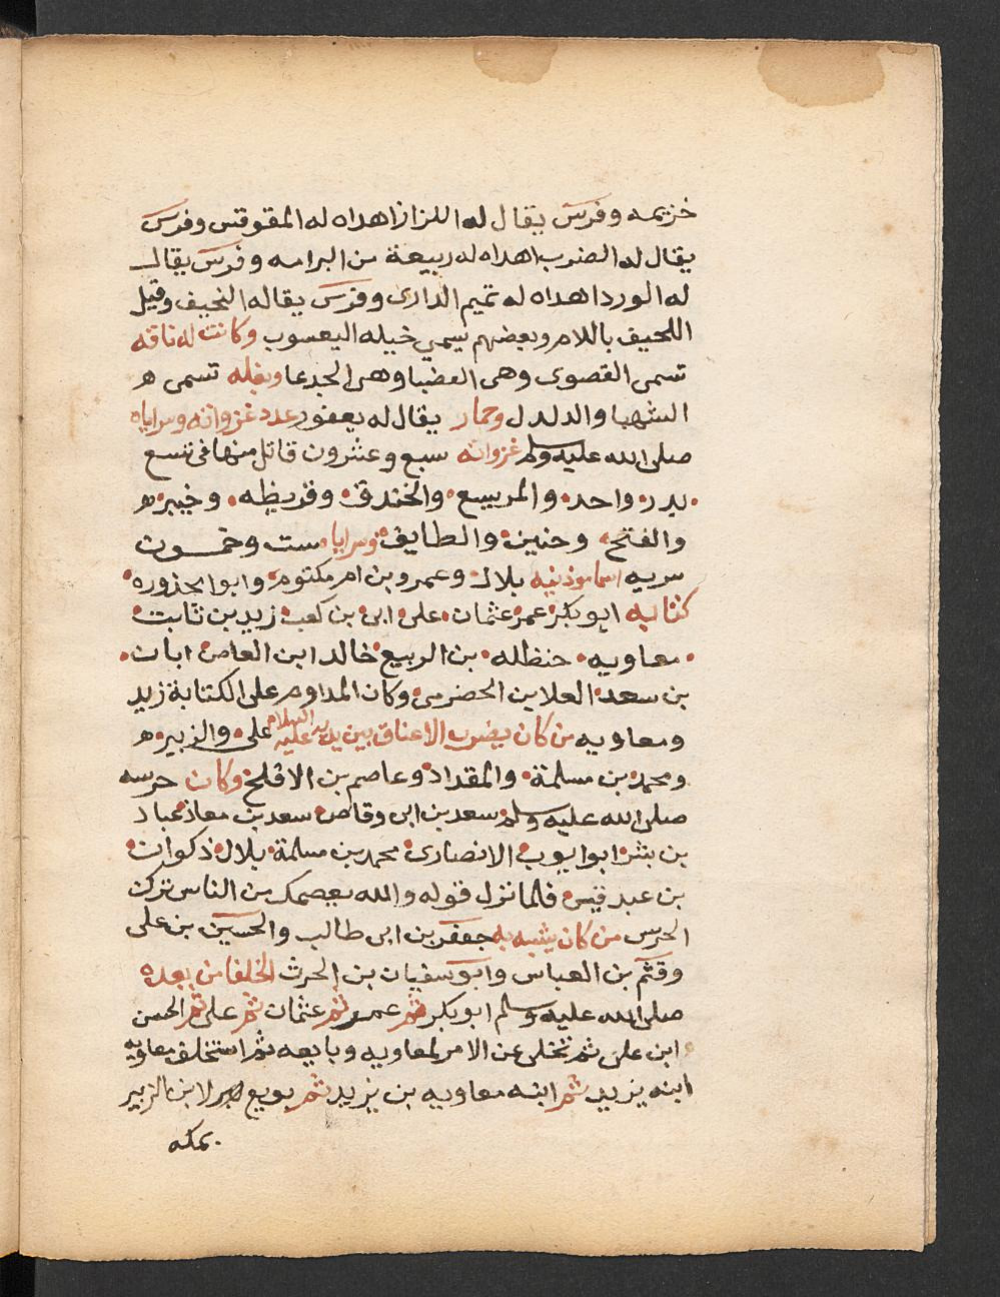 خزيمه وفرس يقال له اللزاز اهداه له المقوقس وفرس
يقال له الضرب اهداه له ربيعة من البرامه وفرس يقال
له الورد اهداه له تميم الدارى وفرس يقاله النحيف وقيل
اللحيف باللام وبعضهم يسمي خيله اليعسوب وكانت له ناقه
تسمى القصوى وهى العضبا وهى الجدعا وبغله تسمى ه
الشهبا والدلدل وحمار يقال له يعفور عدد غزواته وسراياه
صلى الله عليه وسلم غزواته سبع وعشرون قاتل منها فى تسع
بدر واحد والمريسع والخندق وقريظه وخيبر ه
والفتح وحنين والطايف وسراياه ست وخمسون
سريه اسما موذنيه بلال وعمرو بن ام مكتوم وابوا محذوره
كتابه ابو بكر عمر عثمان على ابى بن كعب زيد بن ثابت
معاويه حنظله بن الربيع خالد ابن العاص ابان
بن سعد العلا بن الحضرمى وكان المداوم على الكتابة زيد
ومعاويه من كان يضرب الاعناق بين يديه عليه السلام على والزبير ه
ومحمد بن مسلمة والمقداد وعاصم بن الافلح وكان حرسه
صلى الله عليه وسلم سعد بن ابى وقاص سعد بن معاذ عباد
بن بشر ابو ايوب الانصارى محمد بن مسلمة بلال ذكوان
بن عبد قيس فلما نزل قوله والله يعصمك من الناس ترك
الحرس من كان يشبه به جعفر بن ابى طالب والحسين بن على
وقثم بن العباس وابو سفيان بن الحرث الخلفا من بعده
صلى الله عليه وسلم ابو بكر ثم عمر ثم عثمان ثم على ثم الحسن
ابن على ثم تخلى عن الامر لمعاويه وبايعه ثم استخلف معاويه
ابنه يزيد ثم ابنه معاويه بن يزيد ثم بويع لابن الزبير
بمكه